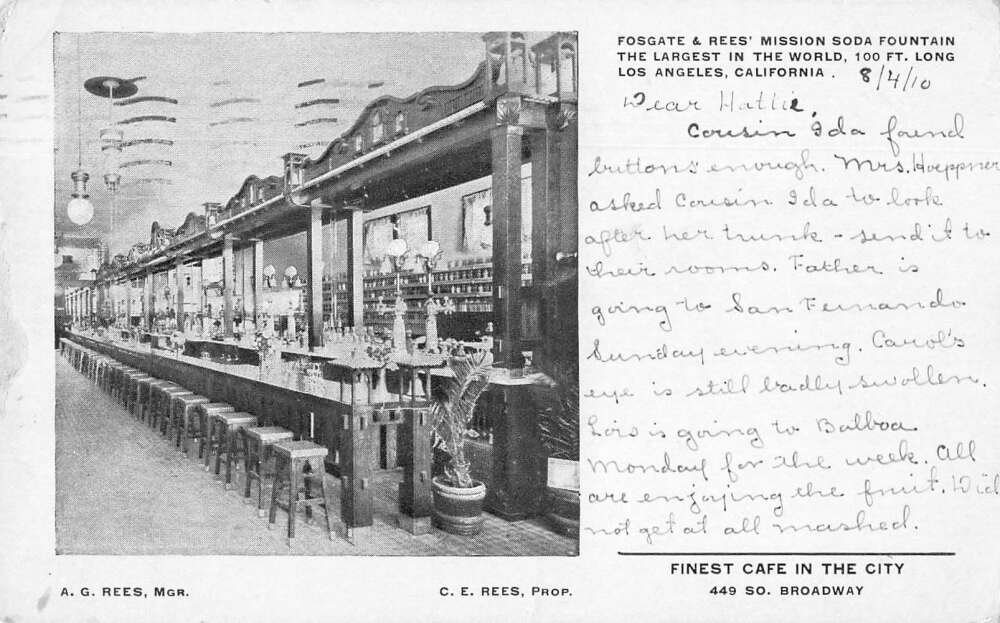 FOSGATE & REES' MISSION SODA FOUNTAIN
THE LARGEST IN THE WORLD, 100 FT. LONG
LOS ANGELES, CALIFORNIA.
8/4/10
Dear Hattie,
Cousin Ida found
buttons enough. Mrs. Hoeppner
asked Cousin Ida to look
after her trunk - send it to
their rooms. Father is
going to San Fernando
Sunday evening. Carol's
eye is still badly swollen.
Lois is going to Balboa
Monday for the week. All
are enjoying the fruit. Did
not get at all mashed.
FINEST CAFE IN THE CITY
449 SO. BROADWAY
A. G. REES, MGR.
C. E. REES, PROP.